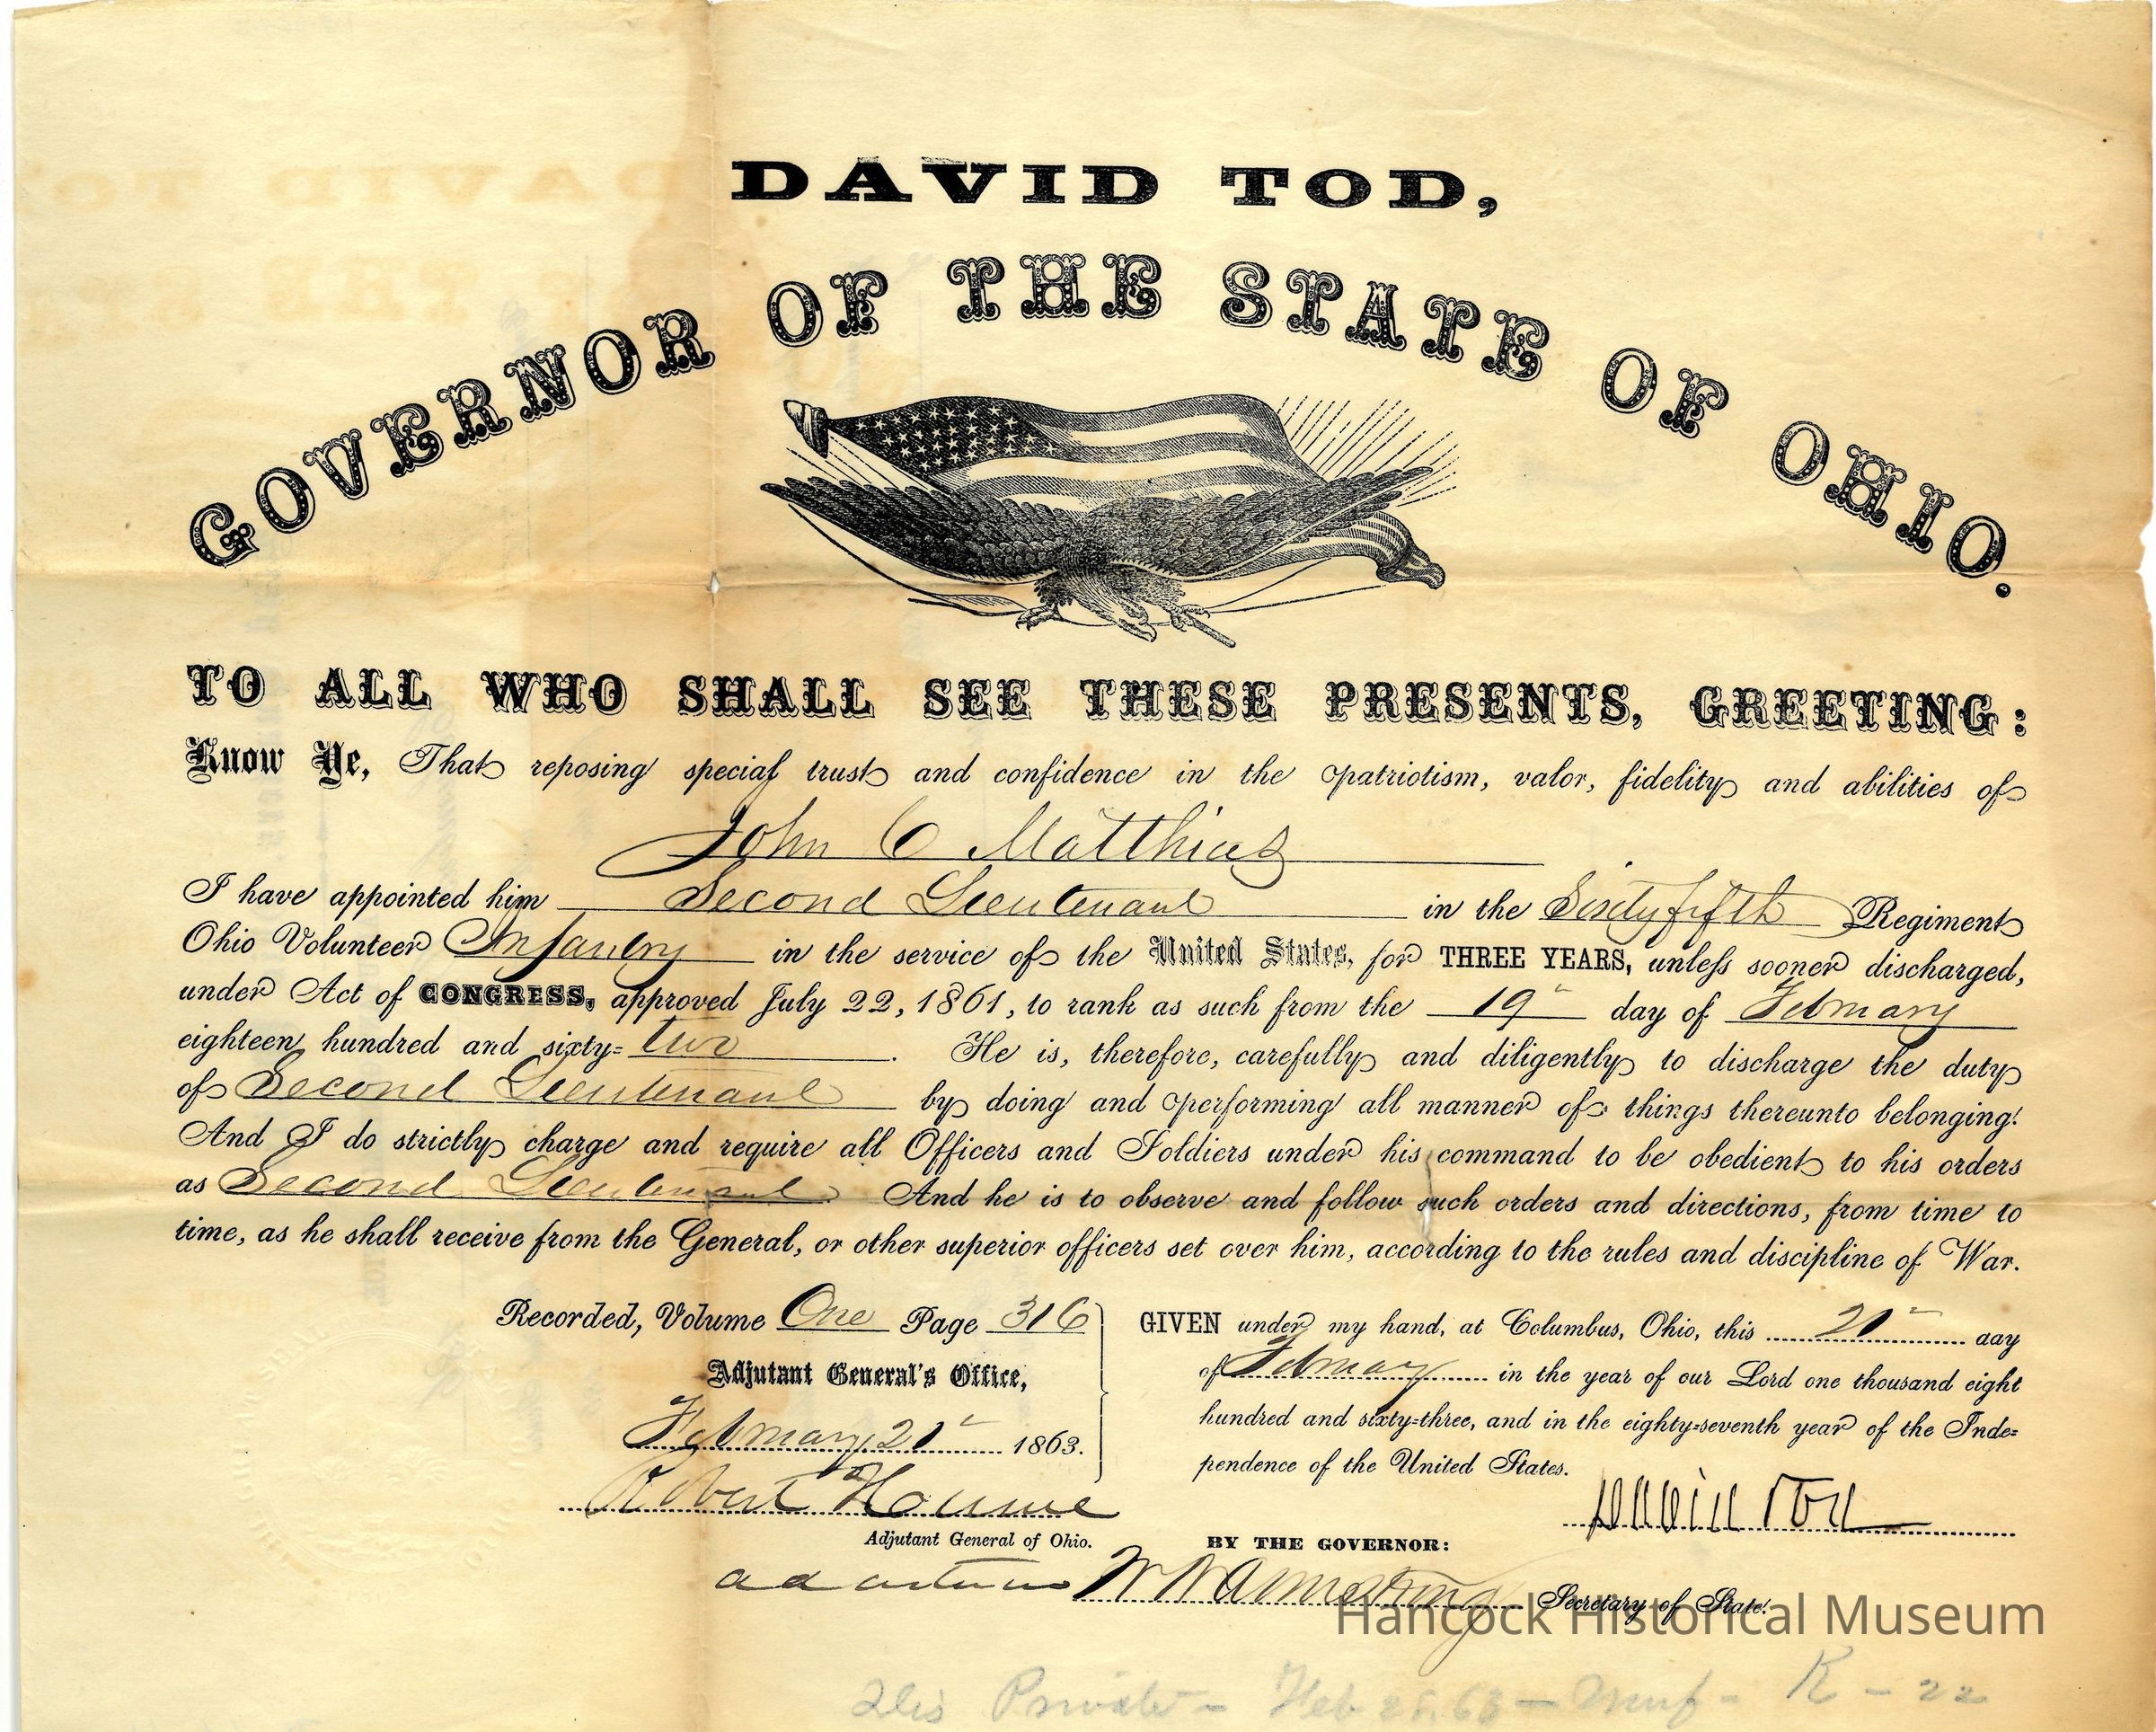 DAVID TOD,
GOVERNOR OF THE STATE OF OHIO.
TO ALL WHO SHALL SEE THESE PRESENTS, GREETING:
Know Ye, That reposing special trust and confidence in the patriotism, valor, fidelity and abilities of
John C Matthias
I have appointed him Second Lieutenant in the Sixty fifth Regiment
Ohio Volunteer Infantry in the service of the United States, for THREE YEARS, unless sooner discharged,
under Act of CONGRESS, approved July 22, 1861, to rank as such from the 19" day of February
eighteen hundred and sixty-two. He is, therefore, carefully and diligently to discharge the duty
of Second Lieutenant by doing and performing all manner of things thereunto belonging.
And I do strictly charge and require all Officers and Soldiers under his command to be obedient to his orders
as Second Lieutenant. And he is to observe and follow such orders and directions, from time to
time, as he shall receive from the General, or other superior officers set over him, according to the rules and discipline of War.
Recorded, Volume One Page 316
Adjutant General's Office,
February 21" 1863.
Robert Hourne
Adjutant General of Ohio.
ad interim
GIVEN under my hand, at Columbus, Ohio, this 21" day
of February in the year of our Lord one thousand eight
hundred and sixty-three, and in the eighty-seventh year of the Inde-
pendence of the United States.
David Tod
BY THE GOVERNOR:
W W Armstrong Secretary of State.
Hancock Historical Museum
Private - Feb 25, 63 - R - 22